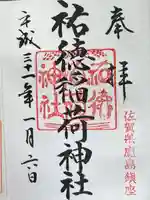 奉拝
佐賀県鹿島鎮座
祐徳稲荷神社
平成三一年一月六日